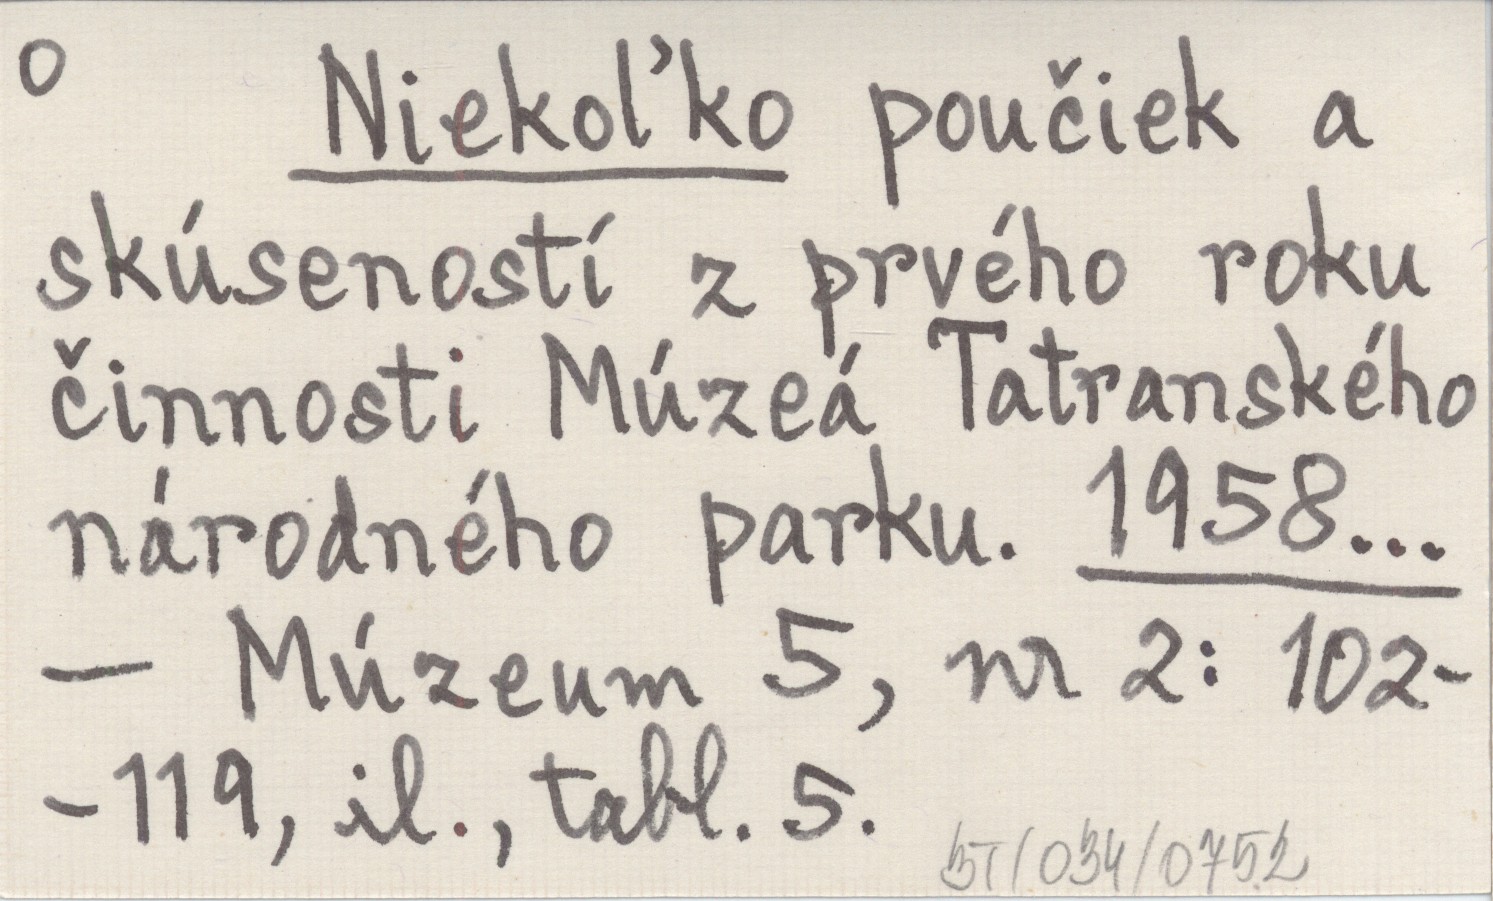 o Niekoľko poučiek a
skúseností z prvého roku
činnosti Múzeá Tatranského
národného parku. 1958...
— Múzeum 5, nr 2: 102-
-119, il., tabl. 5.
BT/034/0752